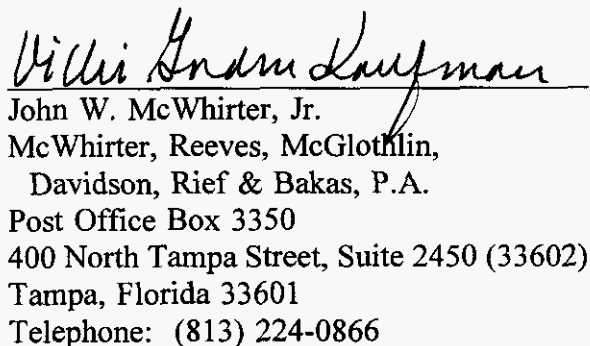 Vicki Gordon Kaufman
John W. McWhirter, Jr.
McWhirter, Reeves, McGlothlin,
Davidson, Rief & Bakas, P.A.
Post Office Box 3350
400 North Tampa Street, Suite 2450 (33602)
Tampa, Florida 33601
Telephone: (813) 224-0866